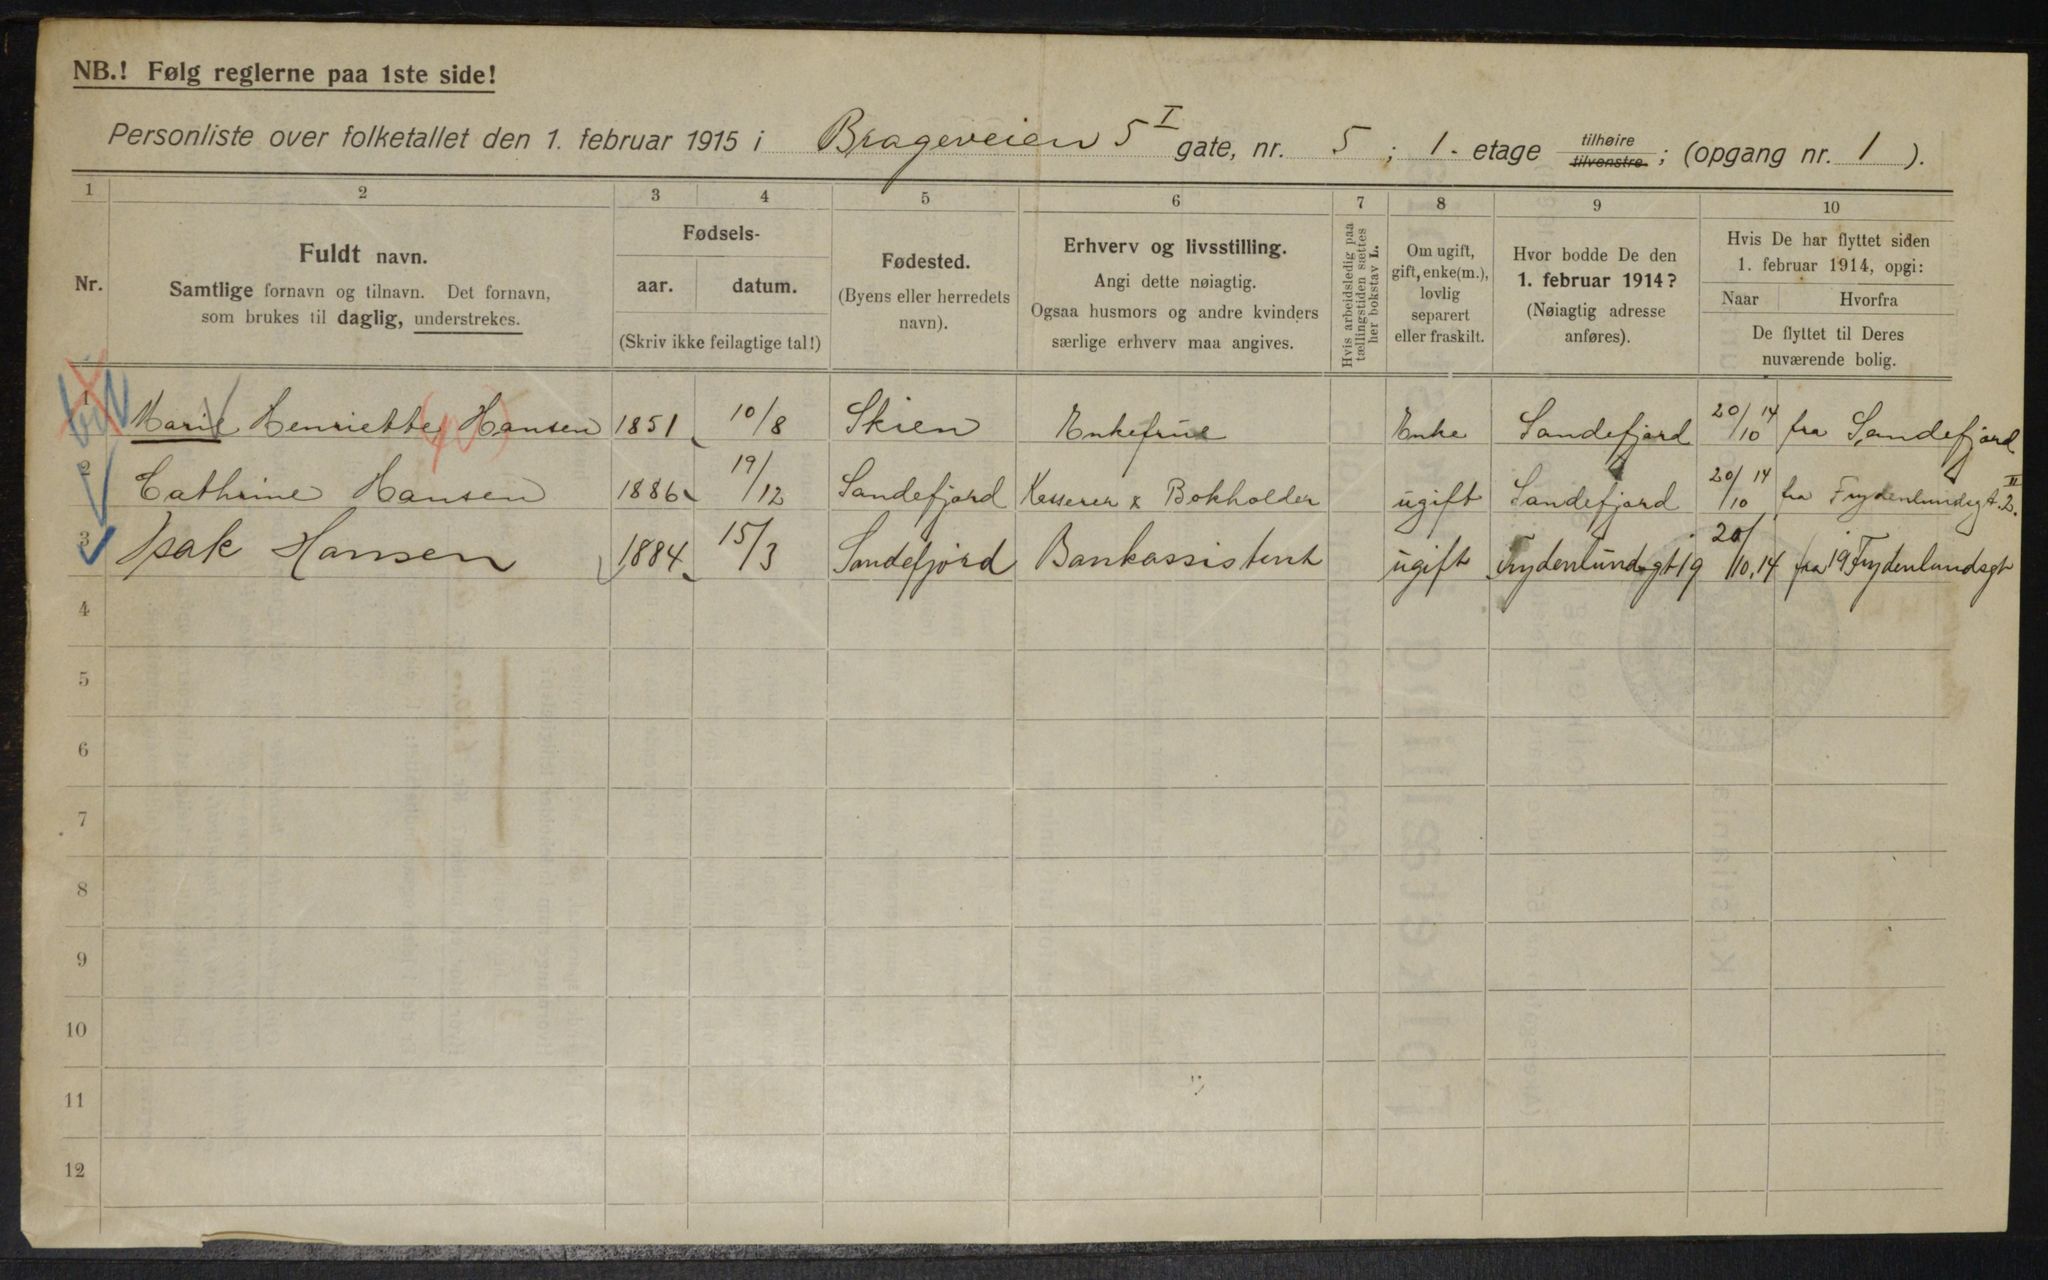 NB.! Følg reglerne paa 1ste side!
Personliste over folketallet den 1. februar 1915 i Brageveien 5 I gate, nr. 5 ; 1. etage tilhøire tilvenstre ; (opgang nr. 1 ).
1 2 3 4 5 6 7 8 9 10
Nr.
Fuldt navn.
Samtlige fornavn og tilnavn. Det fornavn,
som brukes til daglig, understrekes.
Fødsels-
aar. datum.
(Skriv ikke feilagtige tal!)
Fødested.
(Byens eller herredets
navn).
Erhverv og livsstilling.
Angi dette nøiagtig.
Ogsaa husmors og andre kvinders
særlige erhverv maa angives.
Hvis arbeidsledig paa
tællingstiden sættes
her bokstav L.
Om ugift,
gift, enke(m.),
lovlig
separert
eller fraskilt.
Hvor bodde De den
1. februar 1914?
(Nøiagtig adresse
anføres).
Hvis De har flyttet siden
1. februar 1914, opgi:
Naar Hvorfra
De flyttet til Deres
nuværende bolig.
1 Marie Henriette Hansen 1851 10/8 Skien Enkefrue Enke Sandefjord 20/10 14 fra Sandefjord
2 Cathrine Hansen 1886 19/12 Sandefjord Kasserer & Bokholder ugift Sandefjord 20/10 14 fra Frydenlundsgt. 2. II
3 Isak Hansen 1884 15/3 Sandefjord Bankassistent ugift Frydenlundsgt 19 20/10.14 fra 19 Frydenlundsgt
4
5
6
7
8
9
10
11
12